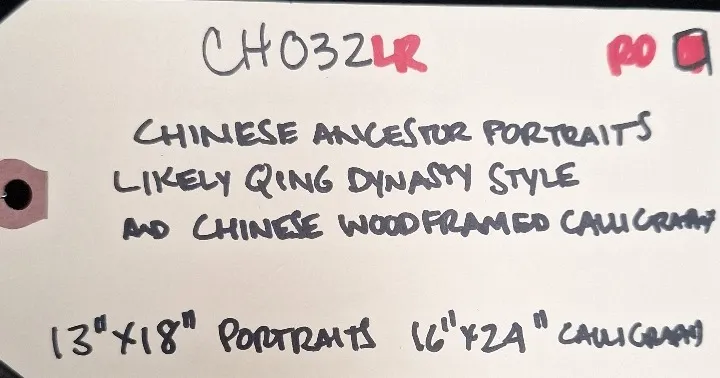 CH032LR RO
CHINESE ANCESTOR PORTRAITS
LIKELY QING DYNASTY STYLE
AND CHINESE WOOD FRAMED CALLIGRAPHY
13"X18" PORTRAITS 16"X24" CALLIGRAPHY